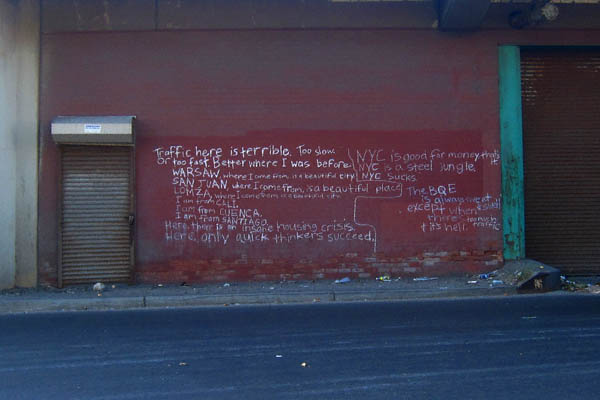 Traffic here is terrible. Too slow
or too fast. Better where I was before.
WARSAW, where I come from, is a beautiful city
SAN JUAN, where I come from, is a beautiful place
LOMZA, where I come from, is a beautiful city.
I am from CALI.
I am from CUENCA.
I am from SANTIAGO.
Here there is an insane housing crisis.
Here, only quick thinkers succeed.
NYC is good for money that's it
NYC is a steel jungle.
NYC sucks.
The BQE
is always great
except when
there is
too much
traffic
it's hell.